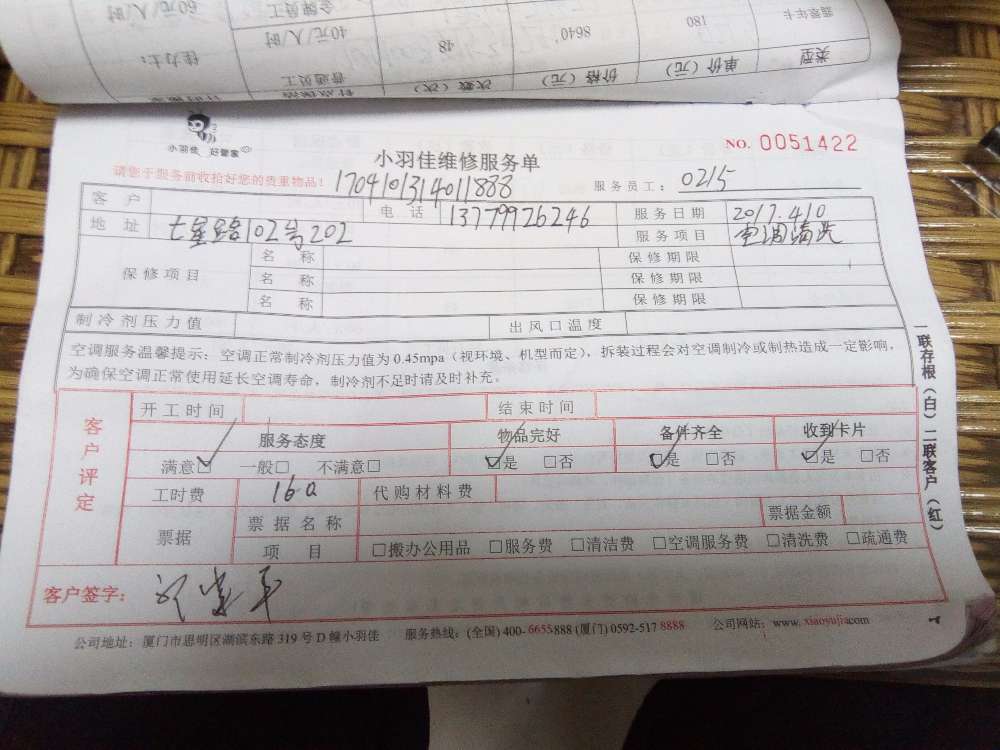 金牌员工 60元/人/时
翡翠年卡 180 8640 48 佳力士： 普通员工 40元/人/时
类型 单价（元） 价格（元） 次数（次）
小羽佳 好管家
小羽佳维修服务单
NO. 0051422
请您于服务前收拾好您的贵重物品！
1704101314011888
服务员工： 0215
客 户 电 话 13779926246 服务日期 2017.4.10
地 址 七星路102号202 服务项目 空调清洗
保修项目
名 称 保修期限
名 称 保修期限
名 称 保修期限
制冷剂压力值 出风口温度
空调服务温馨提示：空调正常制冷剂压力值为0.45mpa（视环境、机型而定），拆装过程会对空调制冷或制热造成一定影响，
为确保空调正常使用延长空调寿命，制冷剂不足时请及时补充。
客户评定
开工时间 结束时间
服务态度 物品完好 备件齐全 收到卡片
满意☑ 一般□ 不满意□ ☑是 □否 ☑是 □否 ☑是 □否
工时费 160 代购材料费
票据 票据名称 票据金额
项 目 □搬办公用品 □服务费 □清洁费 □空调服务费 □清洗费 □疏通费
客户签字：
公司地址：厦门市思明区湖滨东路319号D幢小羽佳 服务热线：(全国) 400-6655888 (厦门) 0592-5178888 公司网站：www.xiaoyujia.com
一联存根（白）二联客户（红）